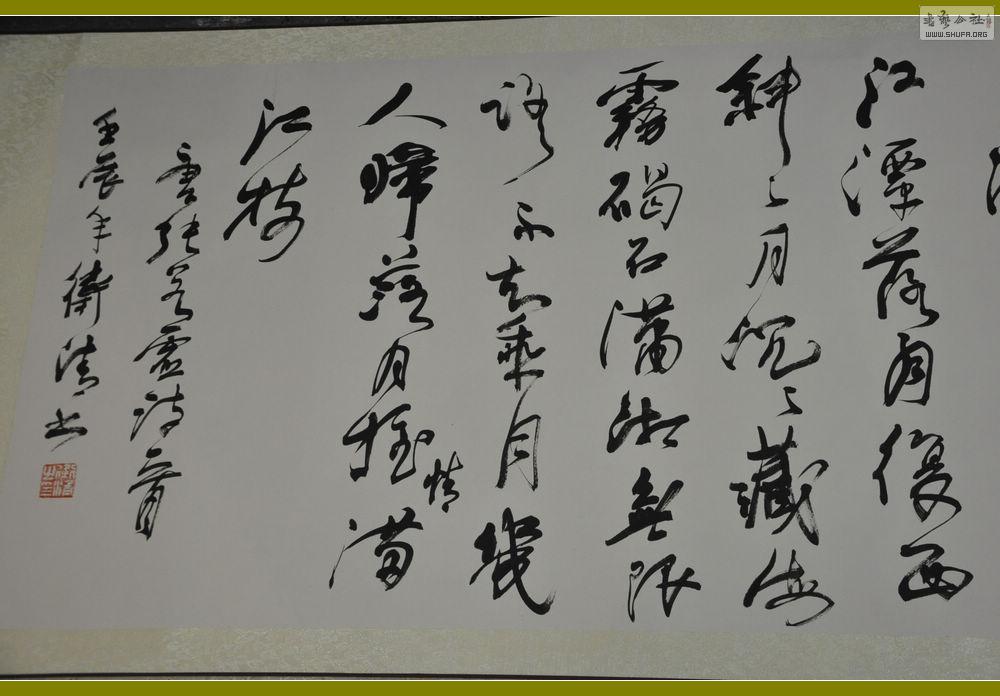 江潭落月復西
斜〻月沉〻藏海
霧碣石瀟湘無限
路不知乘月幾
人歸落月搖情滿
江樹
唐張若虛詩一首
壬辰年衛清书
书艺公社
WWW.SHUFA.ORG